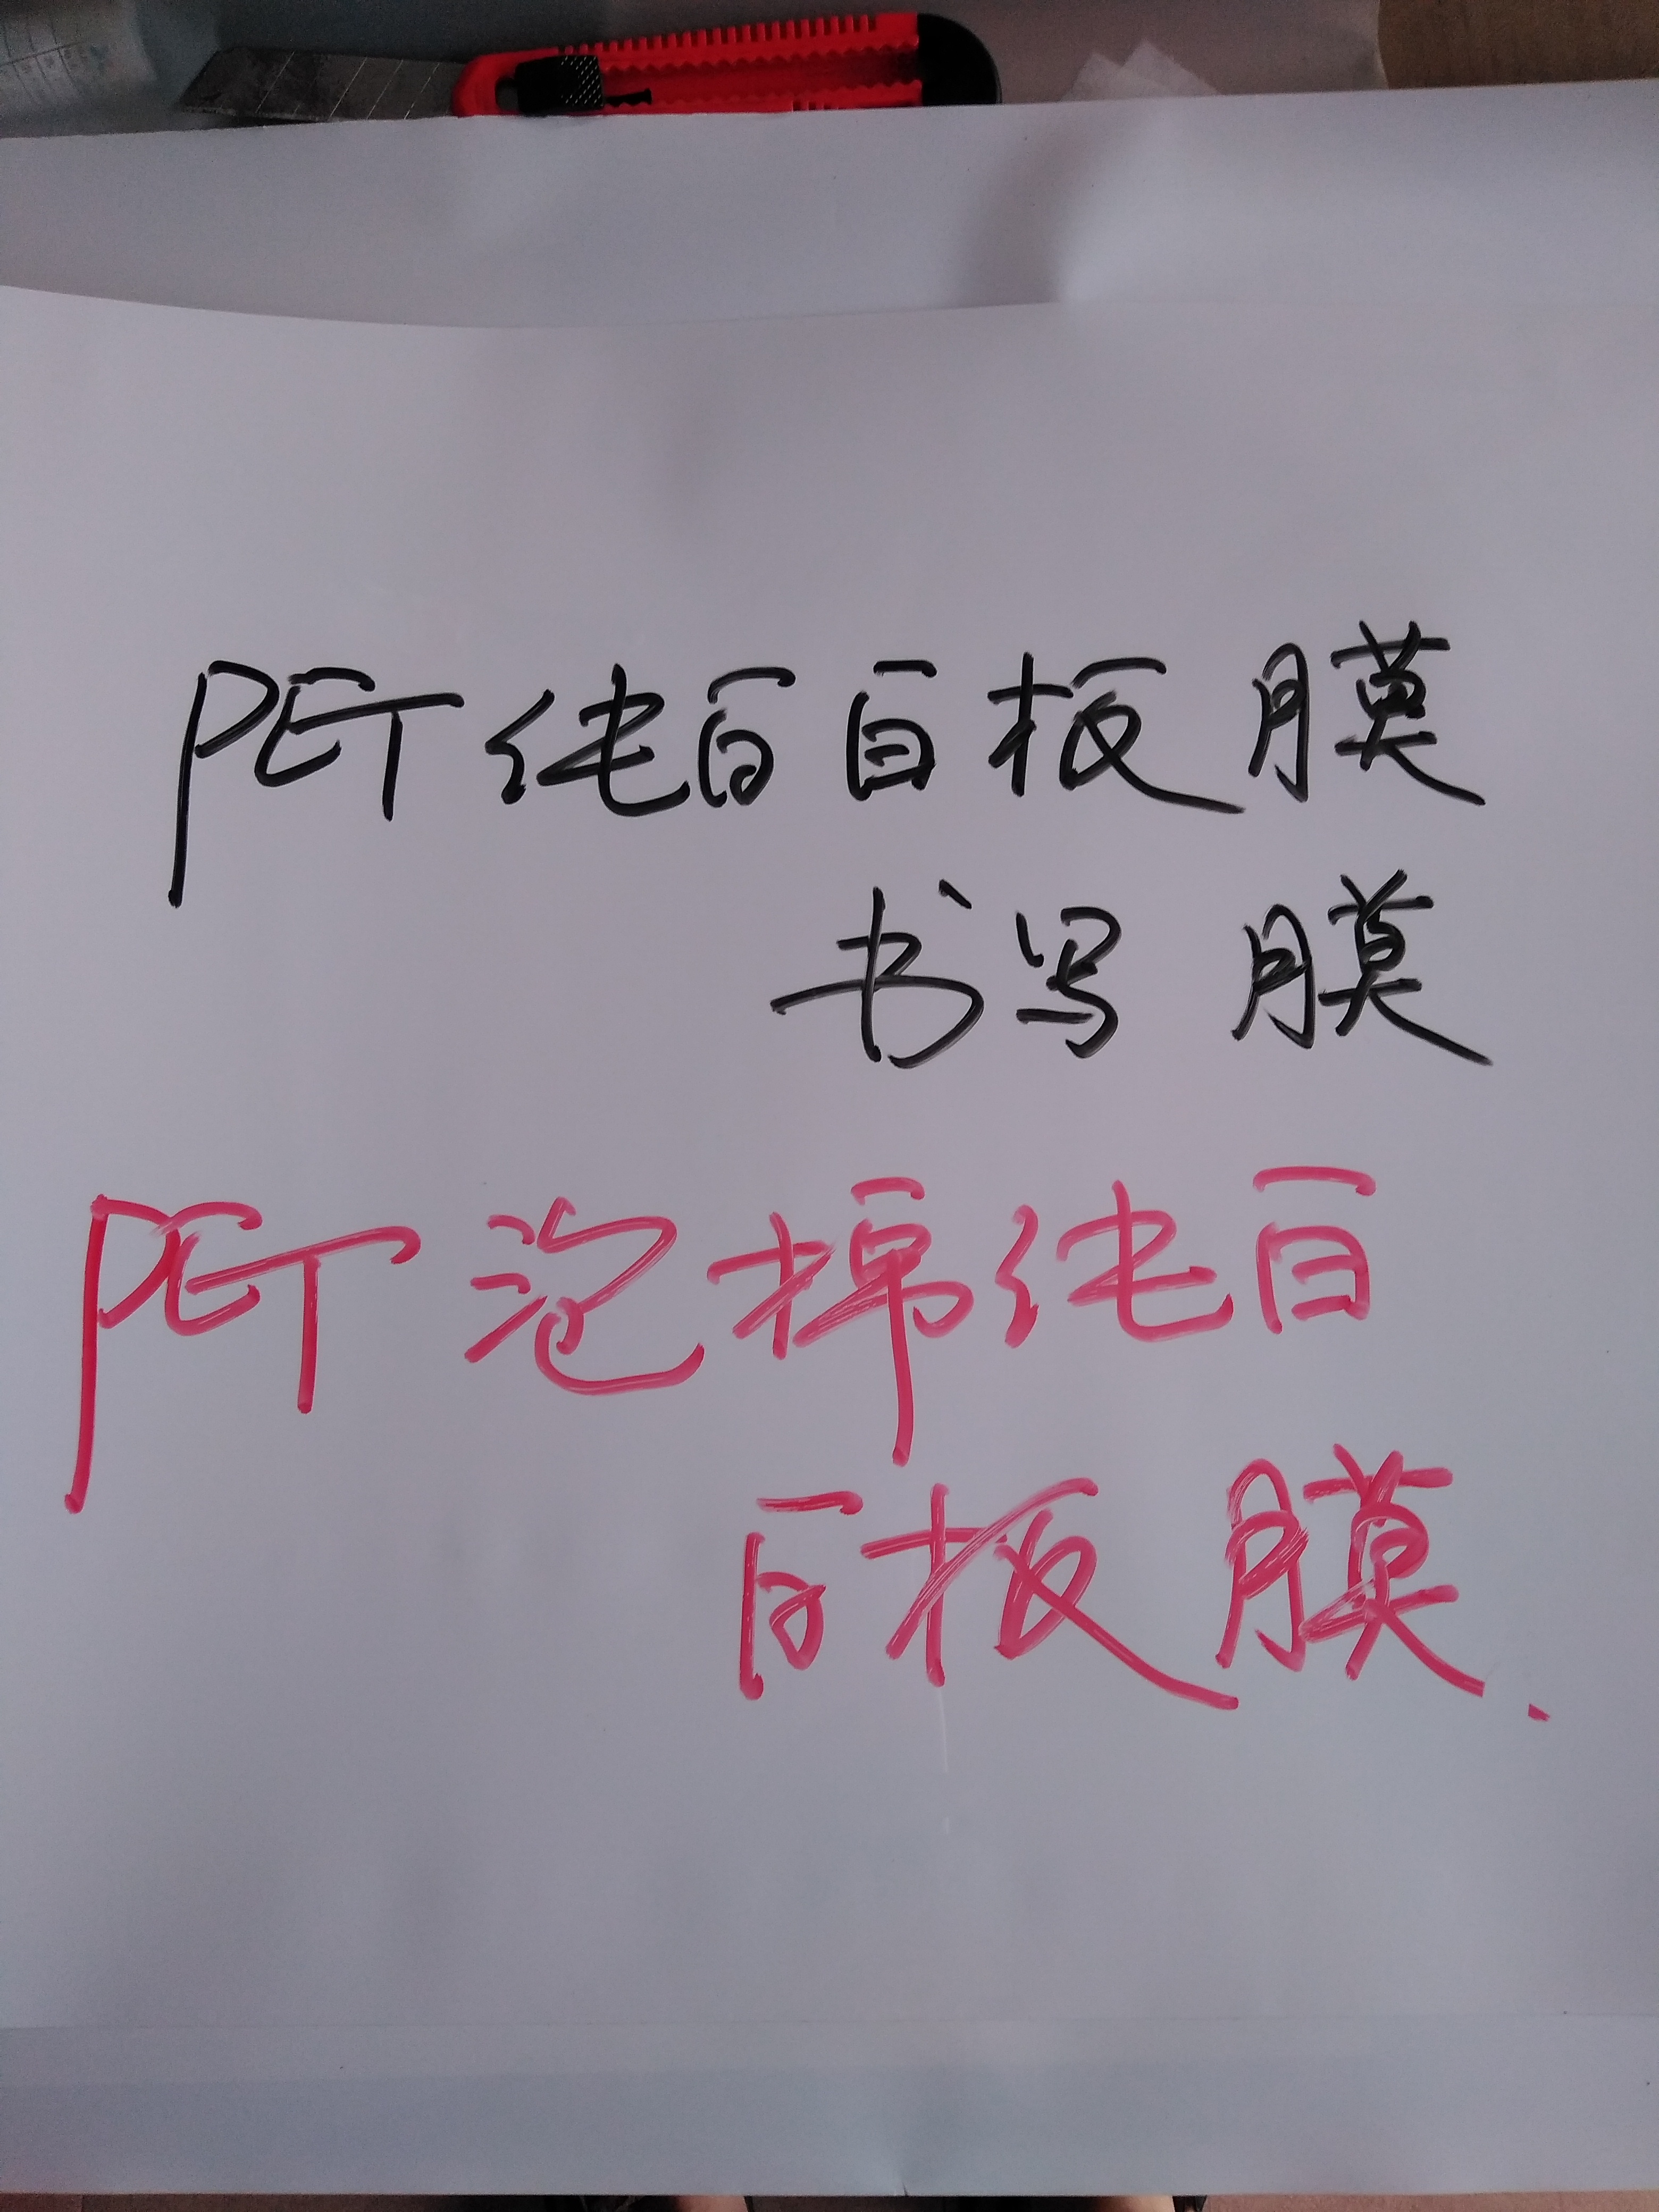 PET纯白白板膜
书写膜
PET泡棉纯白
白板膜.